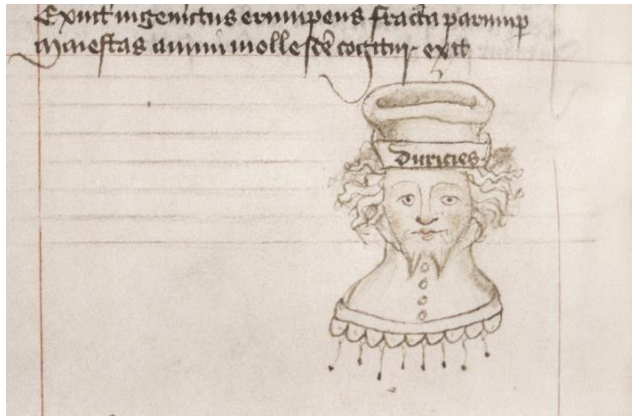 ingemitus erumpens fracta parump
Maiestas animi mollescē cogitur exit
Duricies